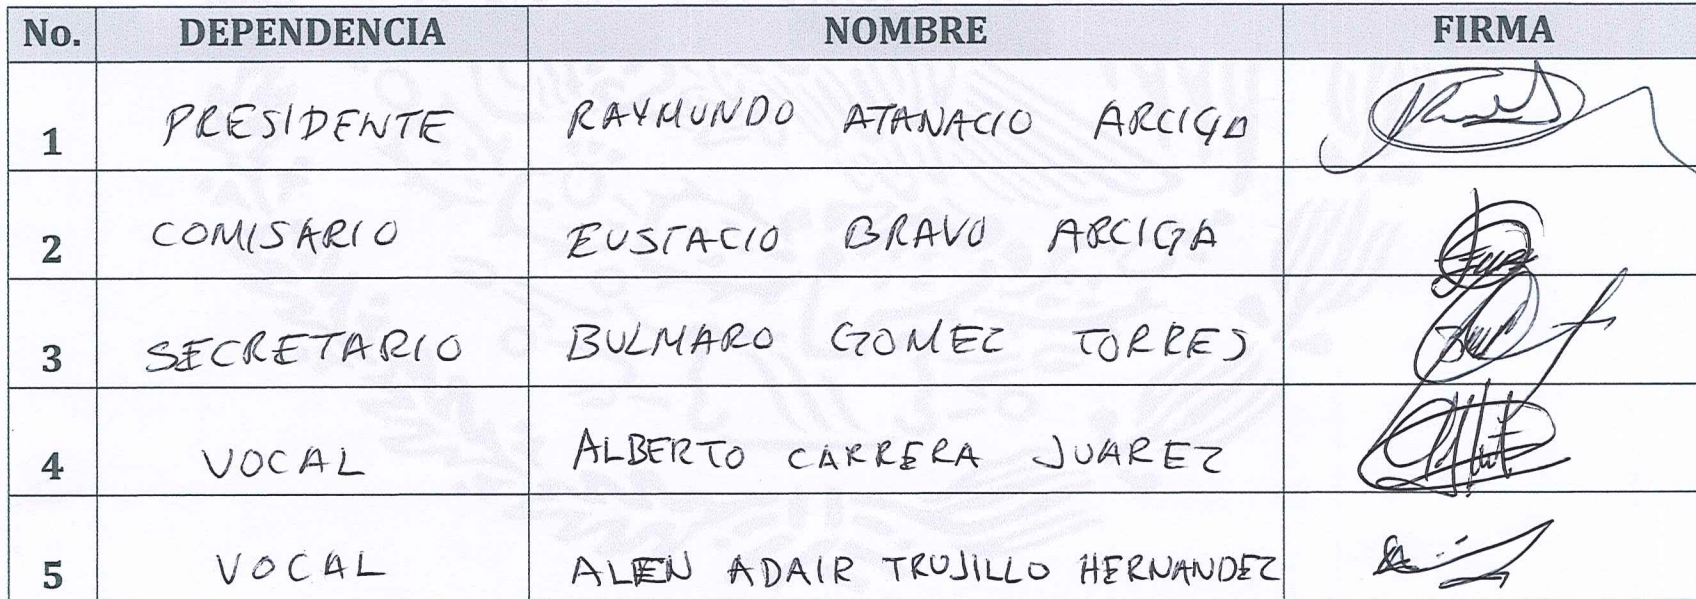 No. DEPENDENCIA NOMBRE FIRMA
1 PRESIDENTE RAYMUNDO ATANACIO ARCIGA
2 COMISARIO EUSTACIO BRAVO ARCIGA
3 SECRETARIO BULMARO GOMEZ TORRES
4 VOCAL ALBERTO CARRERA JUAREZ
5 VOCAL ALEN ADAIR TRUJILLO HERNANDEZ